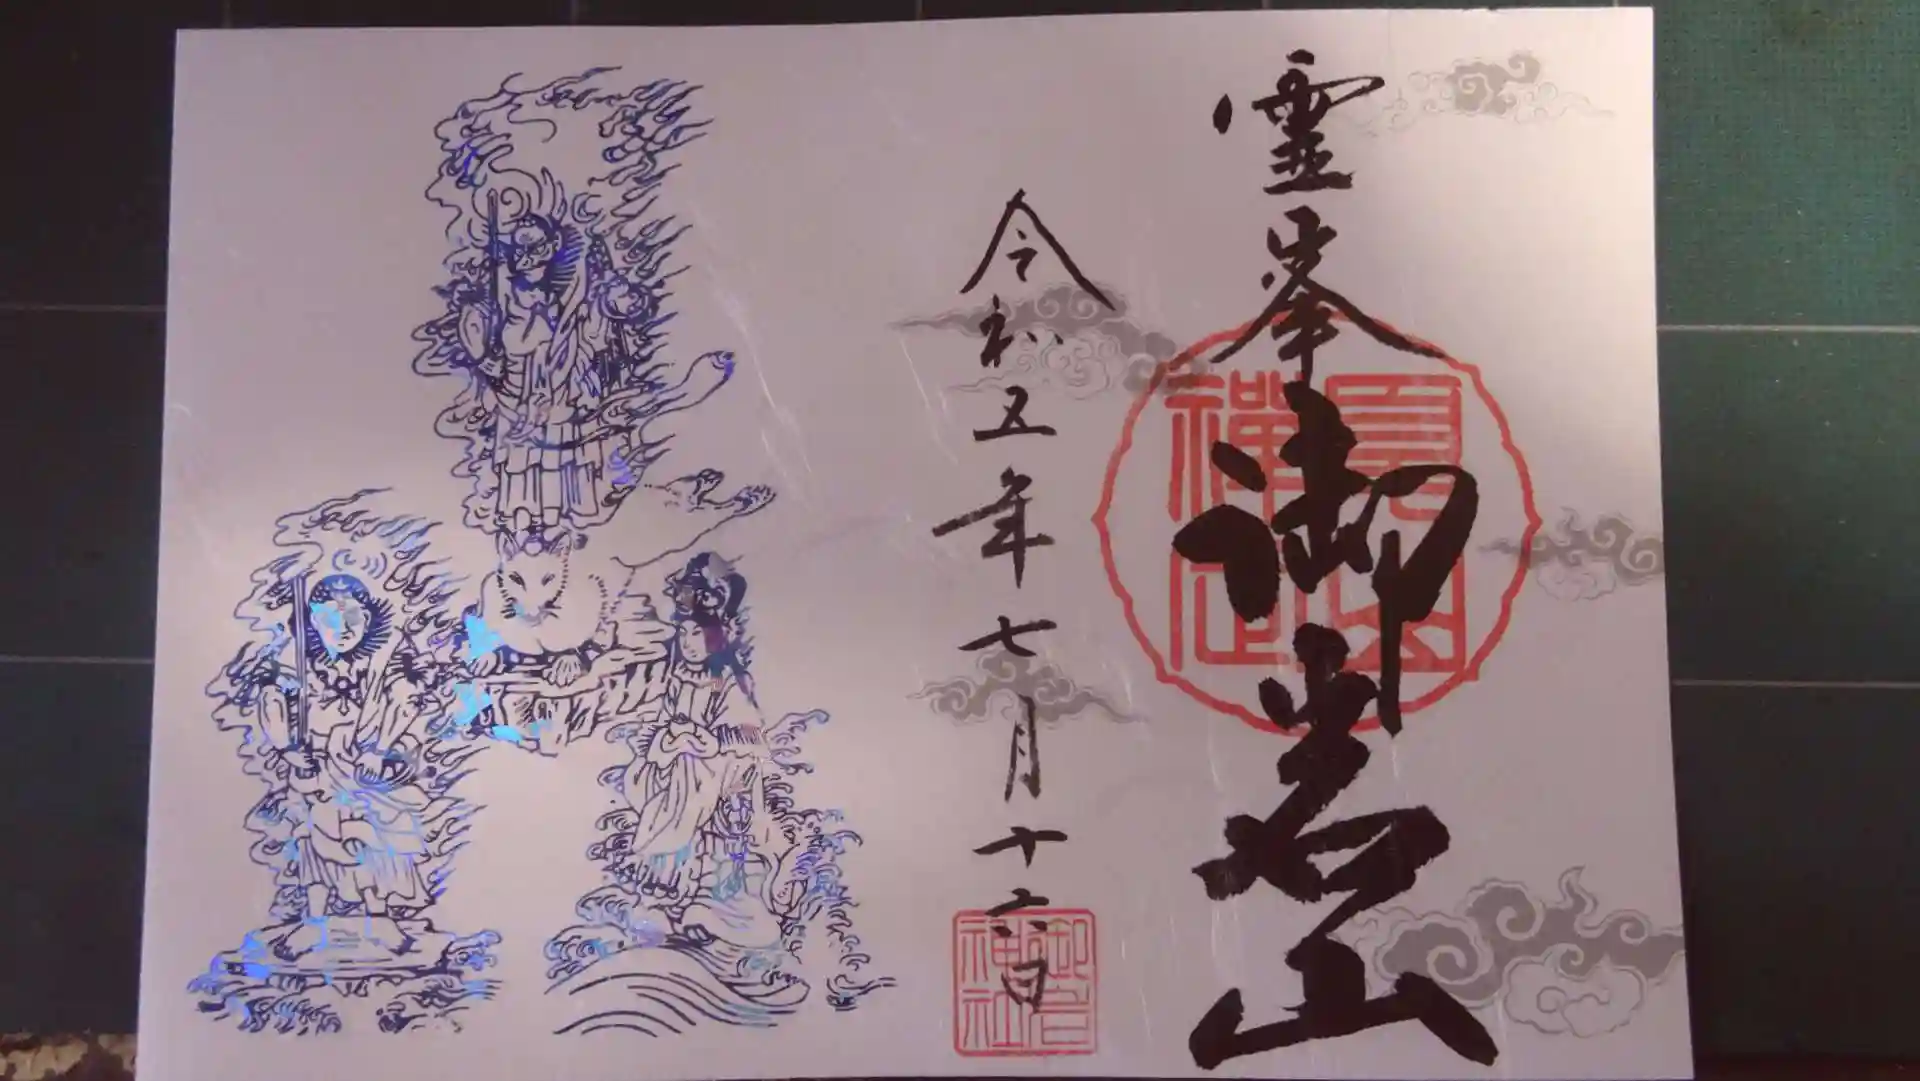 霊峯御岩山
令和五年七月十六日
御岩
神社